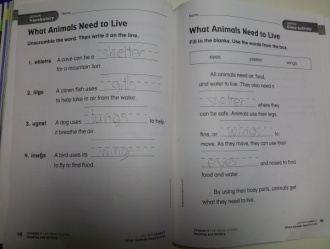 Vocabulary
What Animals Need to Live
Unscramble the word. Then write it on the line.
1. ehlstre
A cave can be a shelter
for a mountain lion.
2. ligs
A clown fish uses gills
to help take in air from the water.
3. ugnsl
A dog uses lungs to help
it breathe the air.
4. insgw
A bird uses its wings
to fly to find food.
What Animals Need to Live
Fill in the blanks. Use the words from the box.
eyes shelter wings
All animals need air, food,
and water to live. They also need a
shelter where they
can be safe. Animals use their legs,
fins, or wings to
move. As they move, they can use their
eyes and noses to find
food and water.
By using their body parts, animals get
what they need to live.